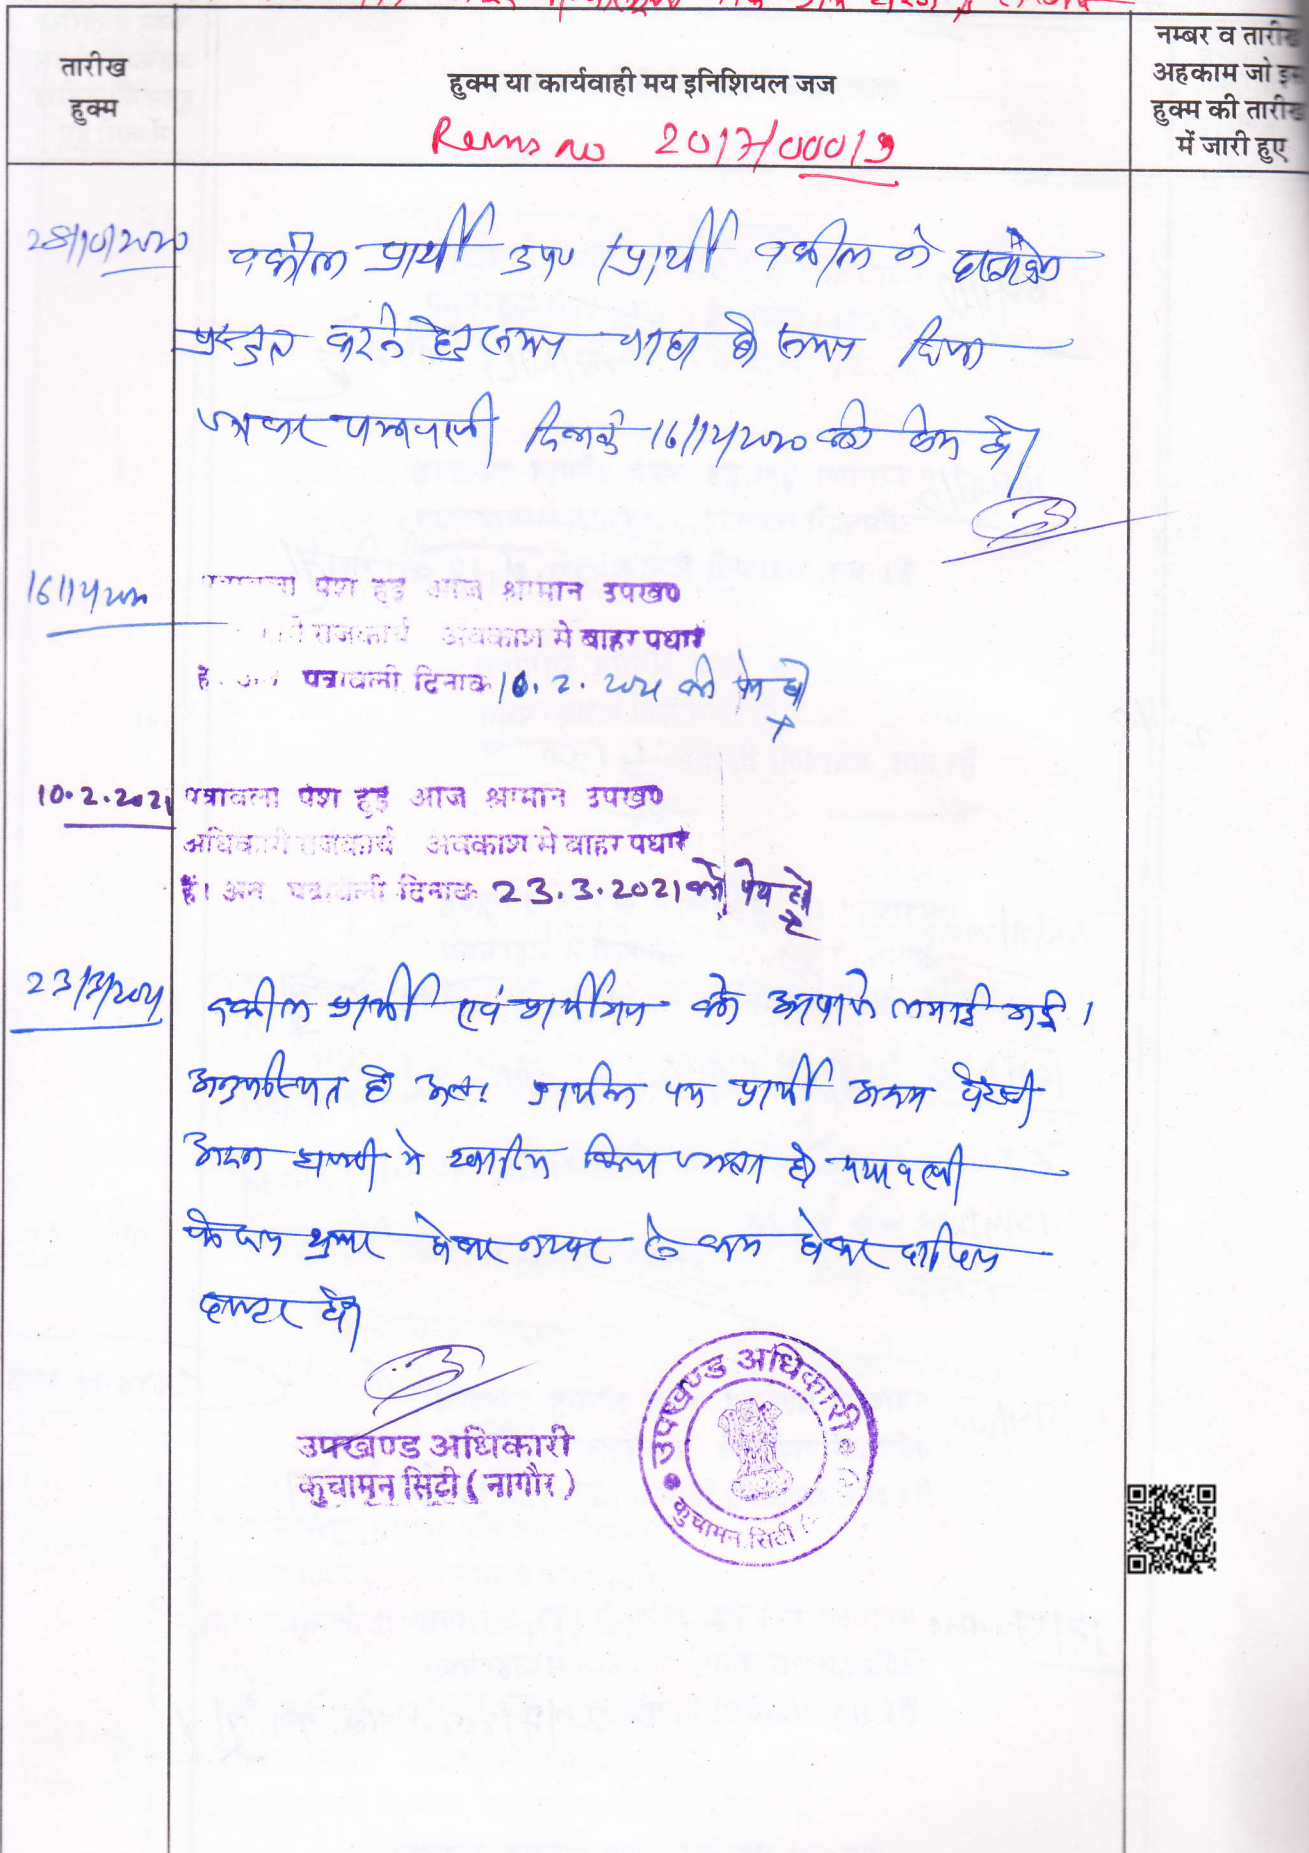 तारीख
हुक्म
हुक्म या कार्यवाही मय इनिशियल जज
नम्बर व तारीख
अहकाम जो इस
हुक्म की तारीख
में जारी हुए
Rems no 2017/00019
28/10/2020 वकील प्रार्थी उप० प्रार्थी वकील ने
प्रस्तुत करने हेतु समय चाहा समय दिया
जाकर पत्रावली दिनांक 16/12/2020 को पेश हो।
16/12/2020 पत्रावली पेश हुई आज श्रीमान उपखण्ड
राजकार्य अवकाश मे बाहर पधारे
है अतः पत्रावली दिनांक 10.2.2021 को पेश हो
10.2.2021 पत्रावली पेश हुई आज श्रीमान उपखण्ड
अधिकारी राजकार्य अवकाश मे बाहर पधारे
हैं। अतः पत्रावली दिनांक 23.3.2021 को पेश हो
23/3/2021 वकील प्रार्थी एवं को आवाजे लगाई गई।
अनुपस्थित है अतः प्रार्थना पत्र प्रार्थी अदम पैरवी
अदम हाजरी मे खारीज किया जाता है पत्रावली
फैसल शुमार होकर नम्बर से कम होकर दाखिल
दफ्तर हो।
उपखण्ड अधिकारी
कुचामन सिटी (नागौर)
उपखण्ड अधिकारी
कुचामन सिटी